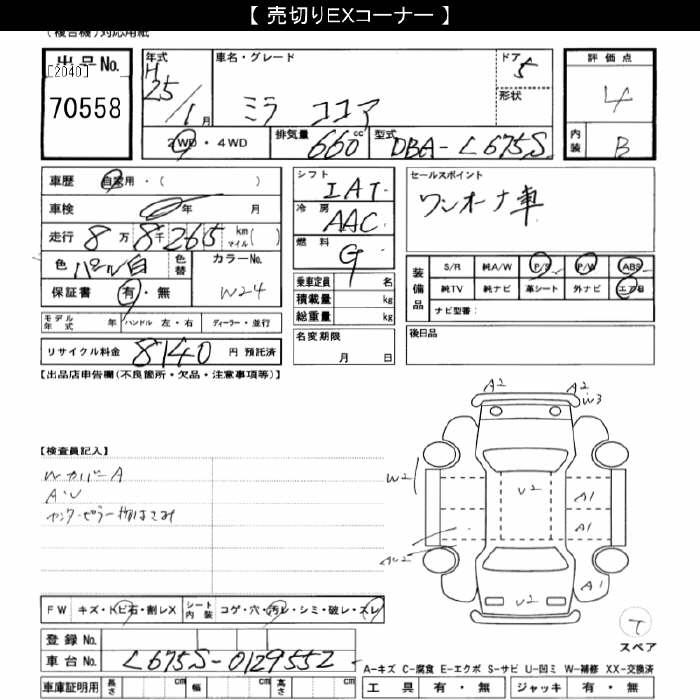 【 売切りEXコーナー 】
(複合機)対応用紙
出品No.
[2040]
70558
年式 H 25 / 1 月
車名・グレード
ミラ ココア
ドア 5
形状
評価点
4
内装 B
2WD・4WD
排気量 660 cc
型式 DBA-L675S
車歴 自家用・( )
車検 年 月
走行 8万8千265 km マイル( )
色 パール白
色替
カラーNo.
W24
保証書 有・無
モデル年式 年 ハンドル 左・右 ディーラー・並行
リサイクル料金 8140 円 預託済
シフト IAT
冷房 AAC
燃料 G
乗車定員 名
積載量 kg
総重量 kg
名変期限
月 日
セールスポイント
ワンオーナ車
装備品
S/R 純A/W P/S P/W ABS
純TV 純ナビ 革シート 外ナビ エアB
ナビ型番:
後日品
【出品店申告欄(不良箇所・欠品・注意事項等)】
【検査員記入】
Wカバー A
A・U
A2 A2
W3
W2
U2
A1
A1
A1
U2
スペア
FW キズ・トビ石・割レX シート内装 コゲ・穴・汚レ・シミ・破レ・スレ
登録No.
車台No. L675S-0129552
車庫証明用 長さ cm 幅 cm 高さ cm
A-キズ C-腐食 E-エクボ S-サビ U-凹ミ W-補修 XX-交換済
工具 有・無 ジャッキ 有・無